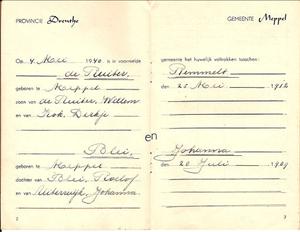 PROVINCIE Drenthe
GEMEENTE Meppel
Op 4 Mei 1940 is in voormelde
gemeente het huwelijk voltrokken tusschen:
de Ruiter, Remmelt
geboren te Meppel den 25 Mei 1912
zoon van de Ruiter, Willem
en van Kok, Dirkje
en
Blei, Johanna
geboren te Meppel den 20 Juli 1909
dochter van Blei, Roelof
en van Ruiterwijk, Johanna
2
3